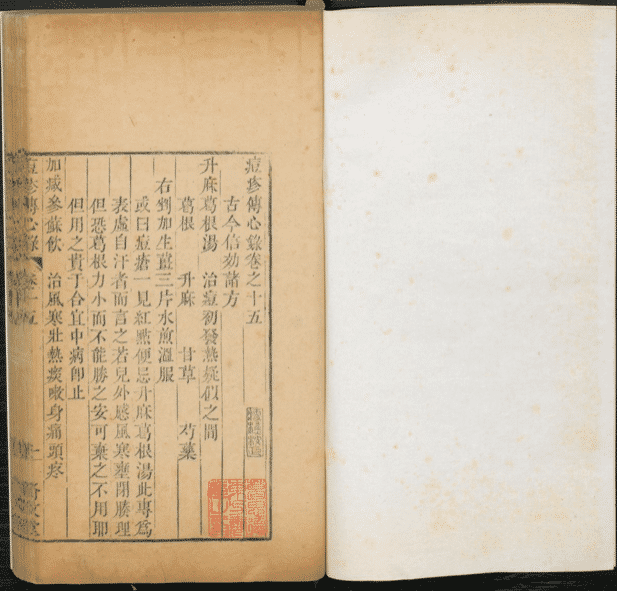 痘疹傳心錄卷之十五
古今信効諸方
升麻葛根湯　治痘初發熱疑似之間
葛根　升麻　甘草　芍藥
右剉加生薑三片水煎溫服
或曰痘瘡一見紅㸃便忌升麻葛根湯此專爲
表虛自汗者而言之若兒外感風寒壅閉腠理
但恐葛根力小而不能勝之安可棄之不用耶
但用之貴于合宜中病卽止
加减參蘇飲　治風寒壯熱痰嗽身痛頭疼
痘疹傳心錄　卷十五　一